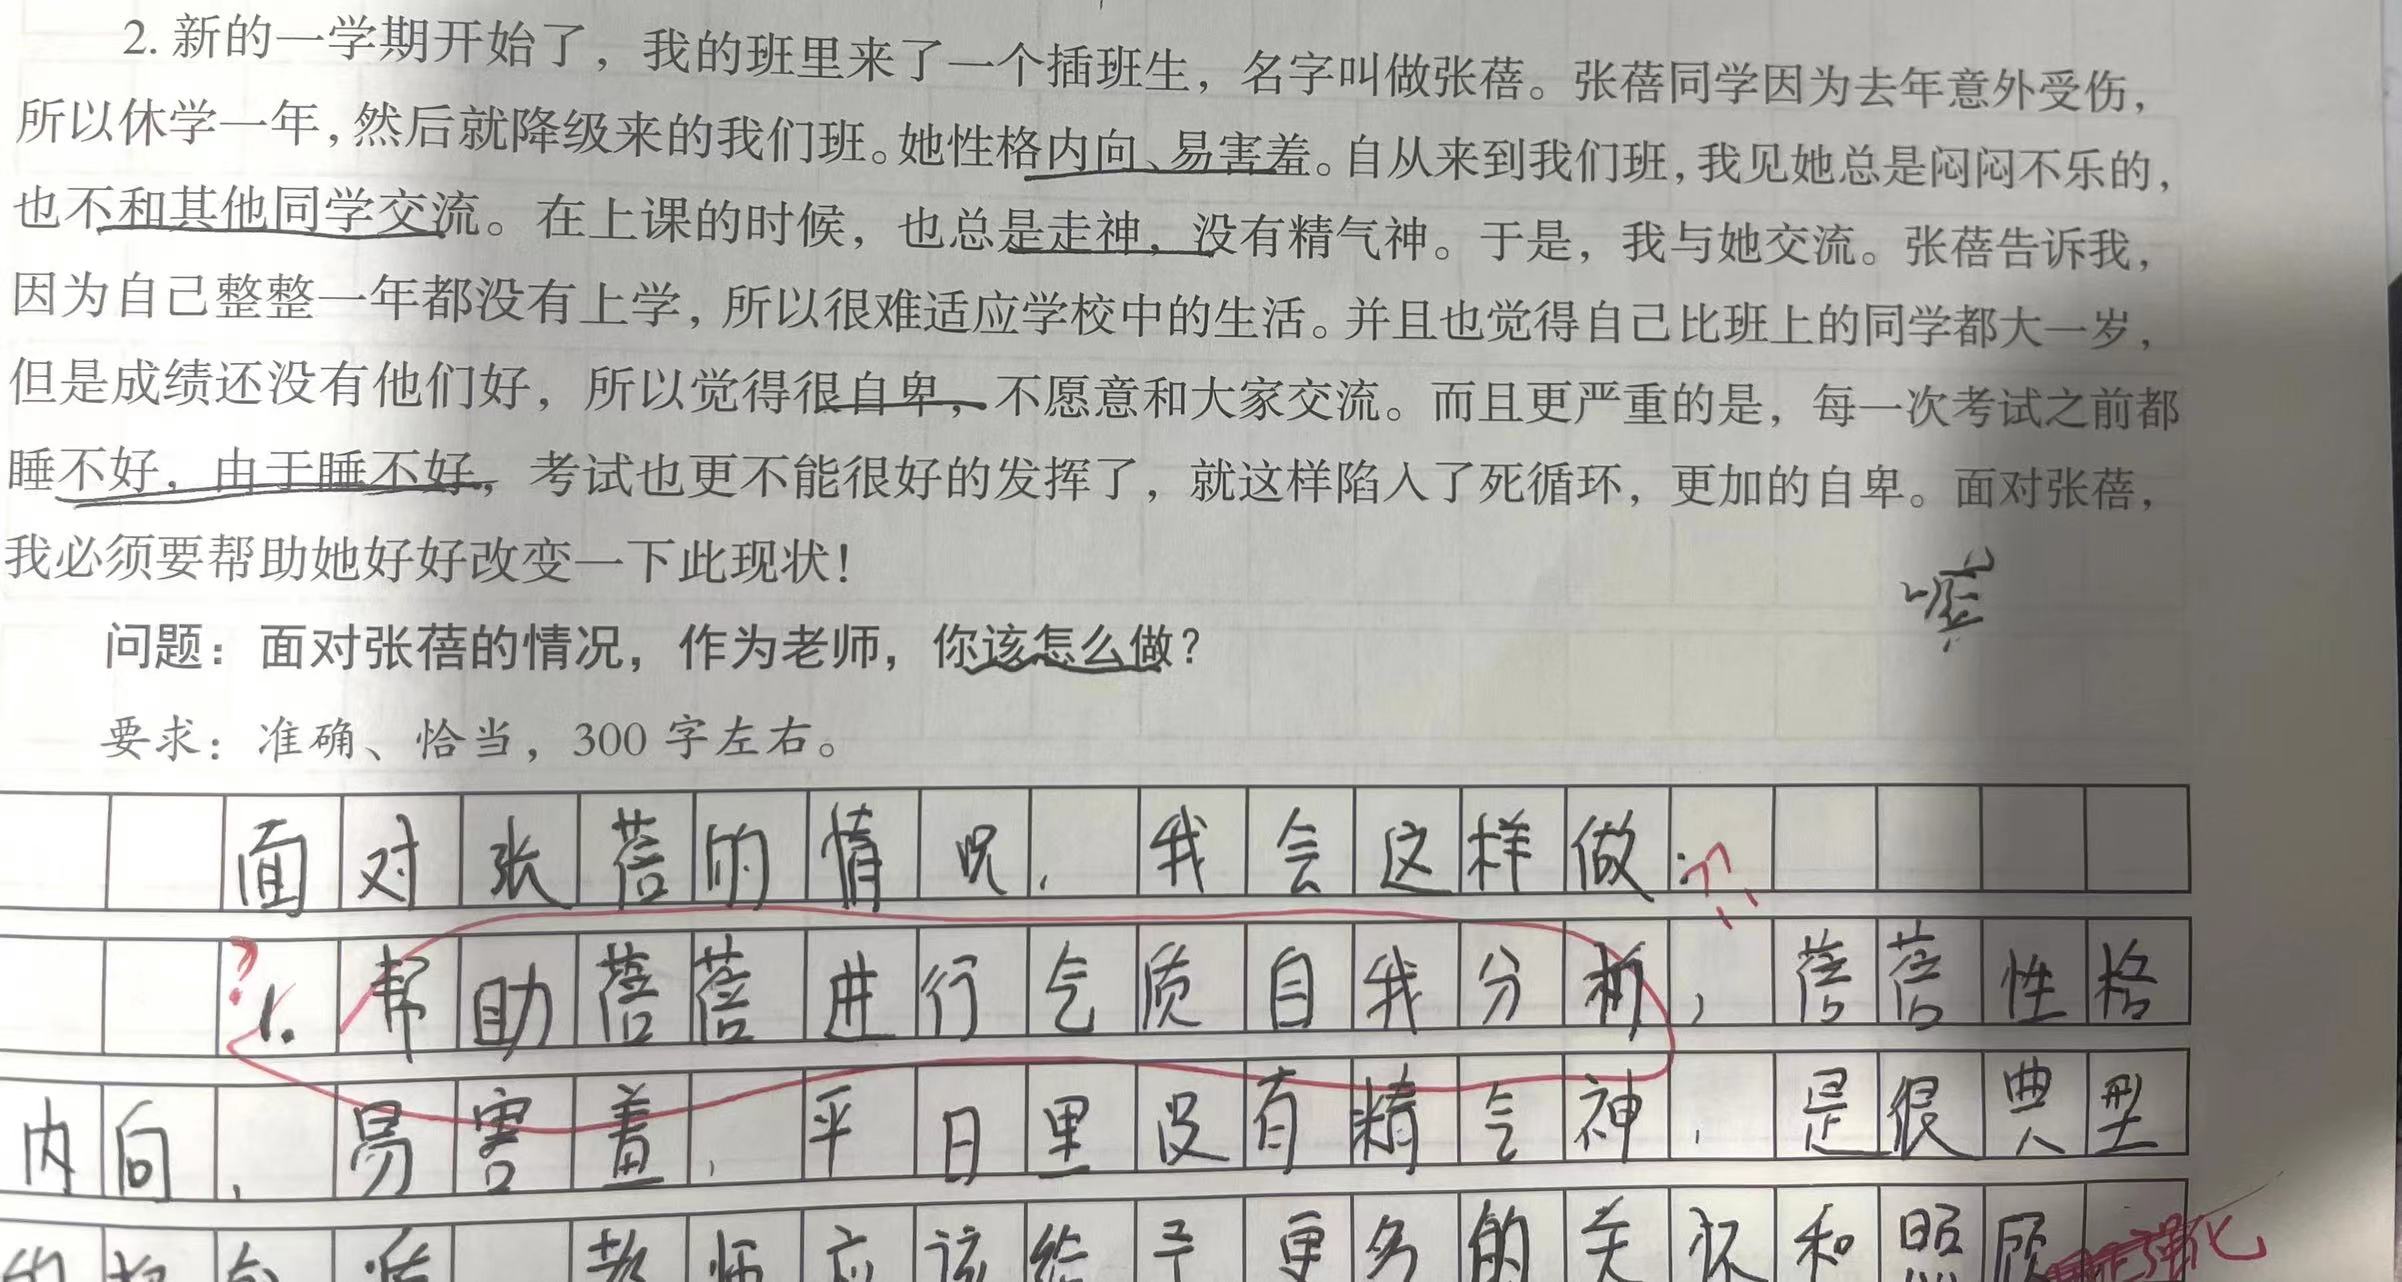 2. 新的一学期开始了，我的班里来了一个插班生，名字叫做张蓓。张蓓同学因为去年意外受伤，
所以休学一年，然后就降级来的我们班。她性格内向、易害羞。自从来到我们班，我见她总是闷闷不乐的，
也不和其他同学交流。在上课的时候，也总是走神，没有精气神。于是，我与她交流。张蓓告诉我，
因为自己整整一年都没有上学，所以很难适应学校中的生活。并且也觉得自己比班上的同学都大一岁，
但是成绩还没有他们好，所以觉得很自卑，不愿意和大家交流。而且更严重的是，每一次考试之前都
睡不好，由于睡不好，考试也更不能很好的发挥了，就这样陷入了死循环，更加的自卑。面对张蓓，
我必须要帮助她好好改变一下此现状！
问题：面对张蓓的情况，作为老师，你该怎么做？
要求：准确、恰当，300 字左右。
面对张蓓的情况，我会这样做：
? 1. 帮助蓓蓓进行气质自我分析，蓓蓓性格
内向、易害羞，平日里没有精气神，是很典型
的抑郁质，教师应该给予更多的关怀和照顾
强化